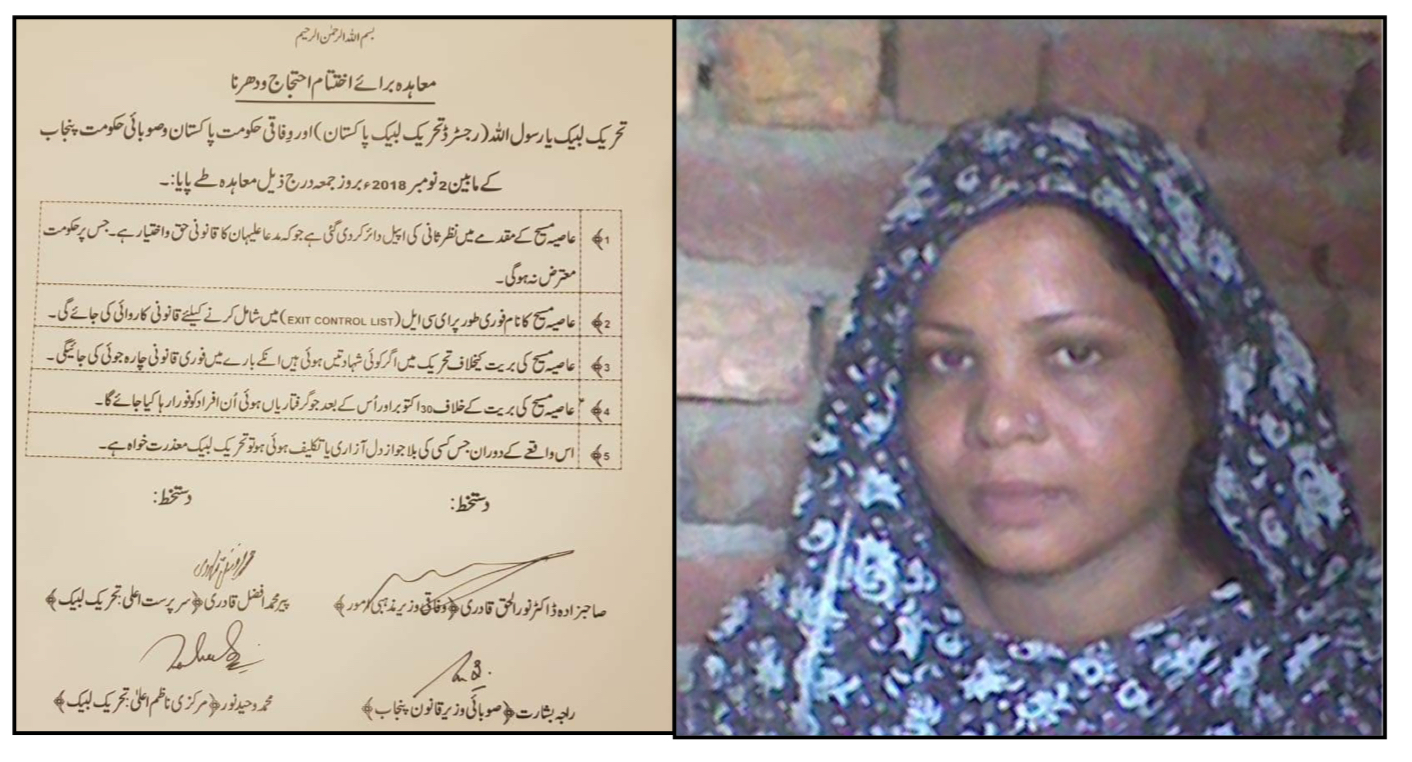 بسم اللہ الرحمٰن الرحیم
معاہدہ برائے اختتام احتجاج و دھرنا
تحریک لبیک یارسول اللہ (رجسٹرڈ تحریک لبیک پاکستان) اور وفاقی حکومت پاکستان و صوبائی حکومت پنجاب
کے مابین 2 نومبر 2018ء بروز جمعہ درج ذیل معاہدہ طے پایا:۔
1﴾ عاصیہ مسیح کے مقدمے میں نظر ثانی کی اپیل دائر کر دی گئی ہے جو کہ مدعا علیہان کا قانونی حق و اختیار ہے۔ جس پر حکومت
معترض نہ ہوگی۔
2﴾ عاصیہ مسیح کا نام فوری طور پر ای سی ایل (EXIT CONTROL LIST) میں شامل کرنے کیلئے قانونی کاروائی کی جائے گی۔
3﴾ عاصیہ مسیح کی بریت کیخلاف تحریک میں اگر کوئی شہادتیں ہوئی ہیں انکے بارے میں فوری قانونی چارہ جوئی کی جائیگی۔
4﴾ عاصیہ مسیح کی بریت کے خلاف 30 اکتوبر اور اُس کے بعد جو گرفتاریاں ہوئی اُن افراد کو فورا رہا کیا جائے گا۔
5﴾ اس واقعے کے دوران جس کسی کی بلا جواز دل آزاری یا تکلیف ہوئی ہو تو تحریک لبیک معذرت خواہ ہے۔
دستخط: دستخط:
صاحبزادہ ڈاکٹر نورالحق قادری ﴿وفاقی وزیر مذہبی امور﴾ پیر محمد افضل قادری ﴿سرپرست اعلی: تحریک لبیک﴾
راجہ بشارت ﴿صوبائی وزیر قانون پنجاب﴾ محمد وحید نور ﴿مرکزی ناظم اعلیٰ: تحریک لبیک﴾